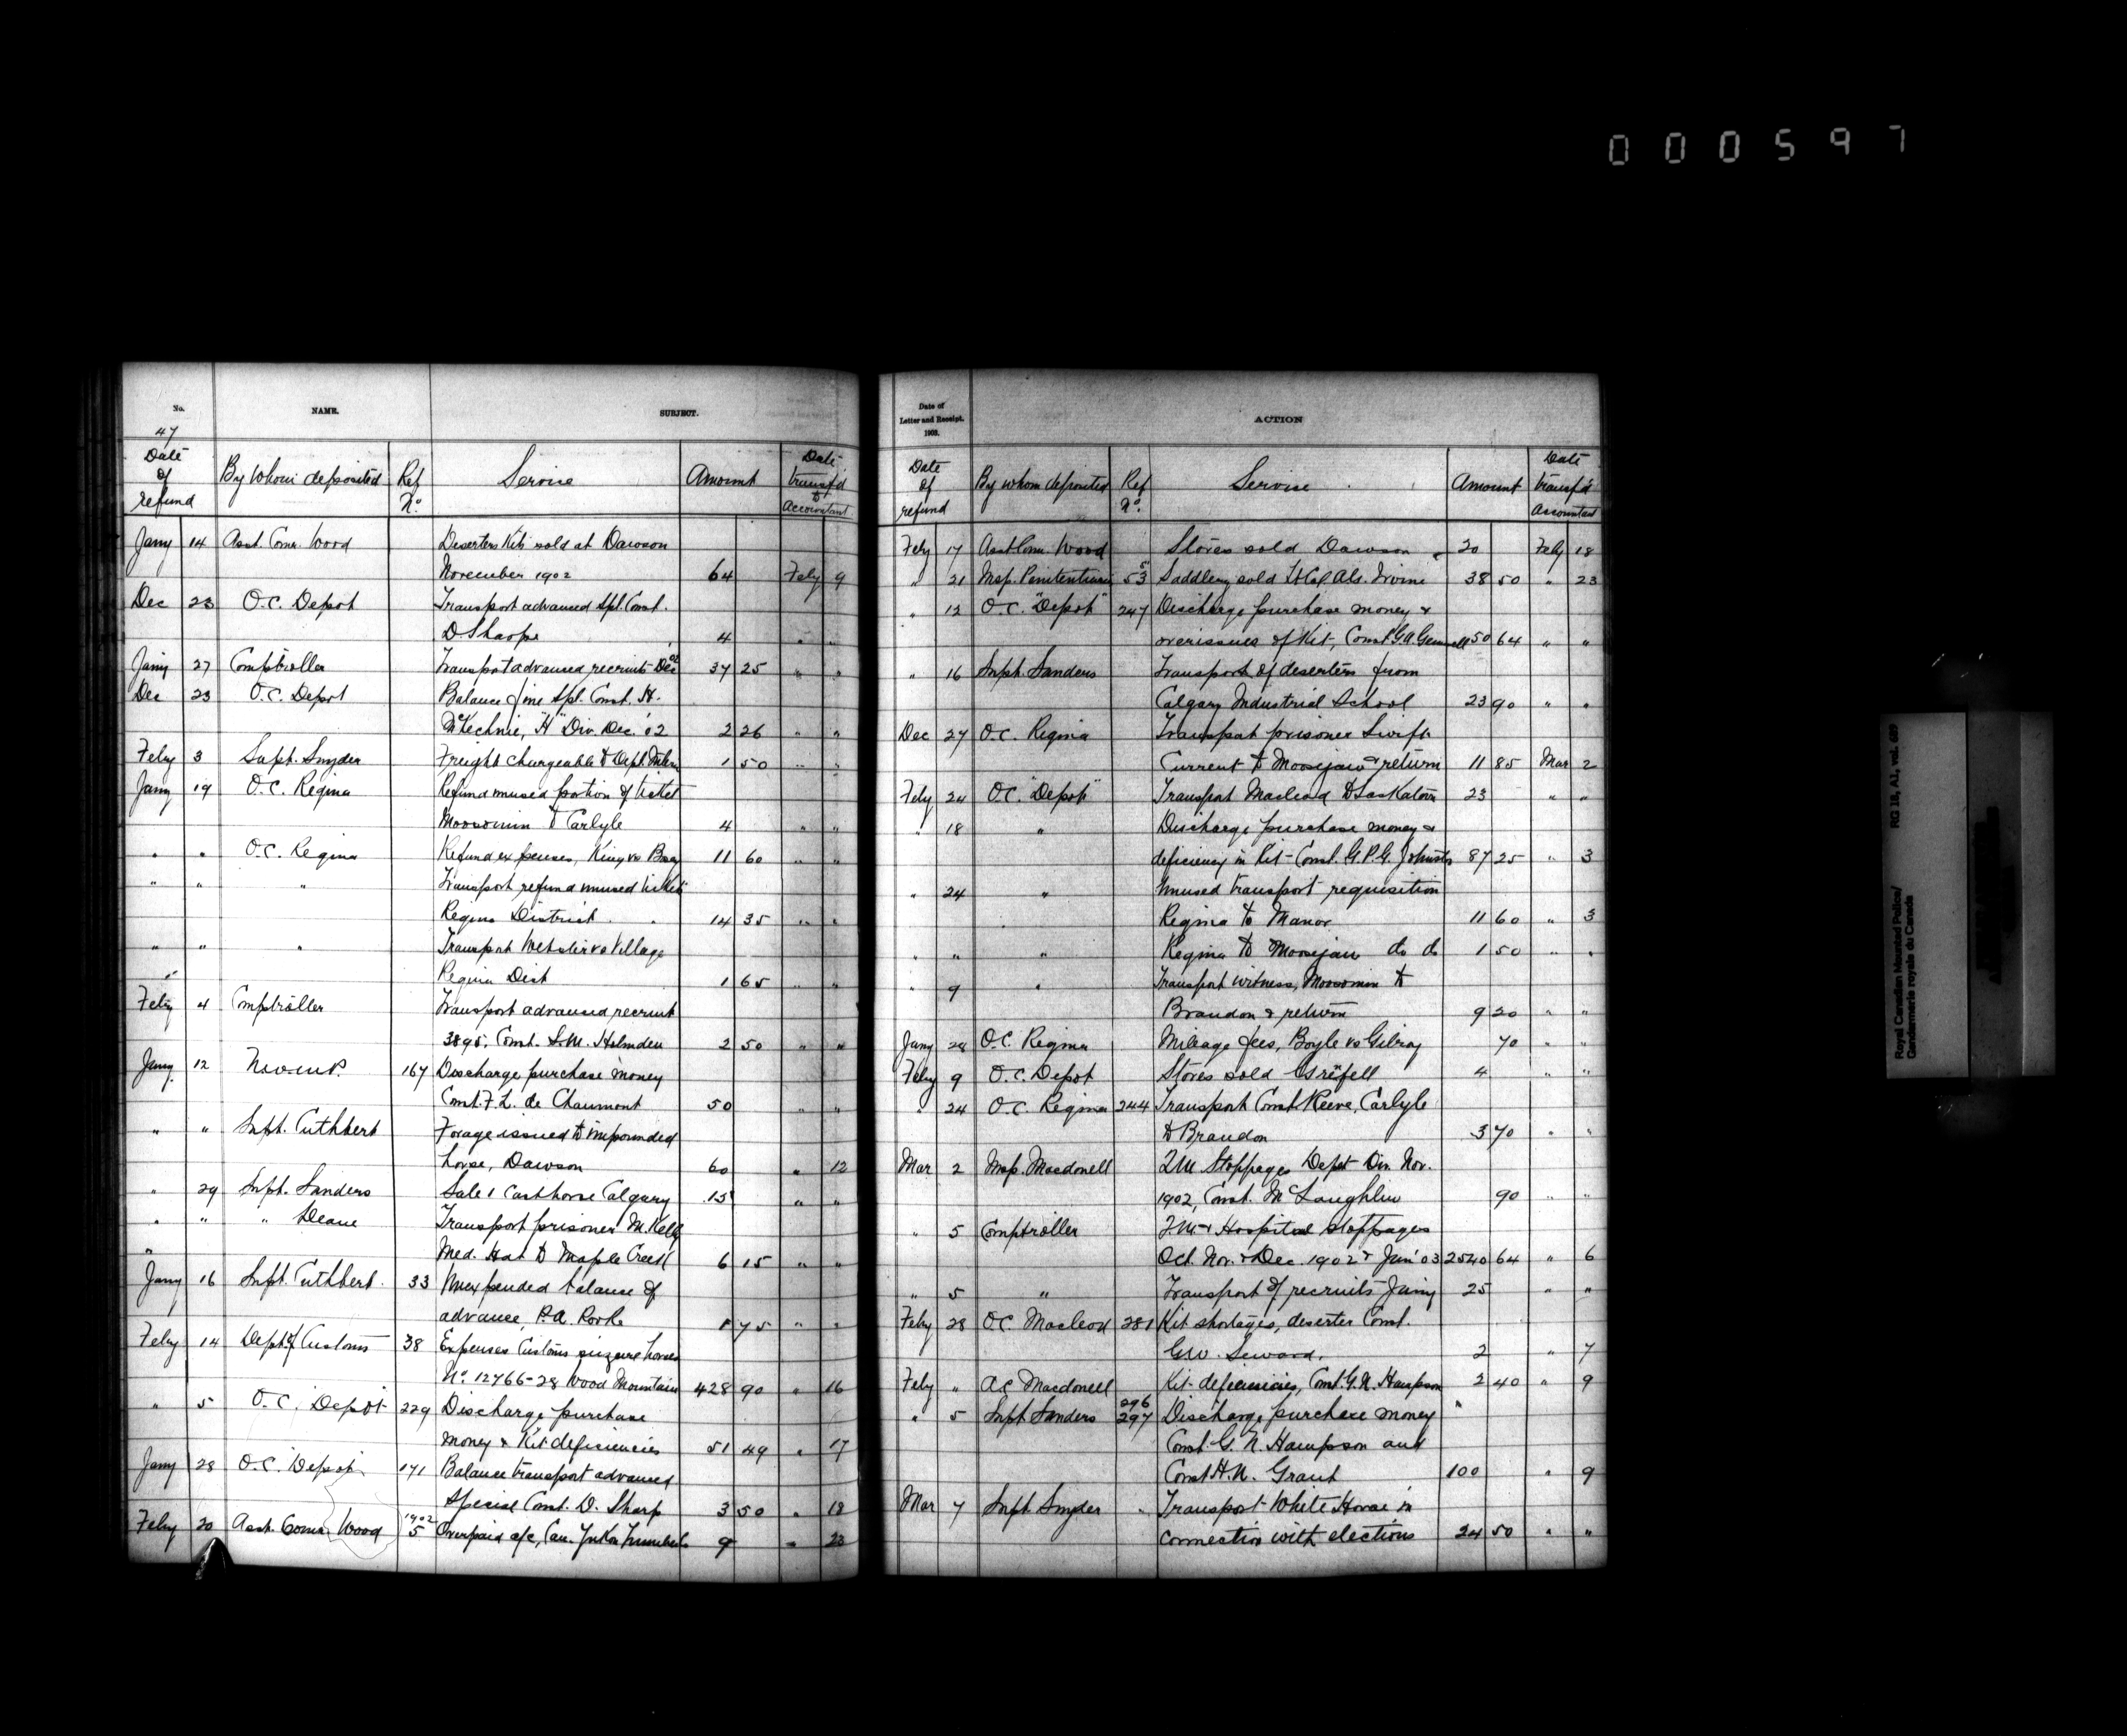 000597
No.
NAME.
SUBJECT.
47
Date of refund
By whom deposited
Ref No.
Service
Amount
Date transf'd to Accountant
Jany 14 Asst. Comr. Wood Deserters Kits sold at Dawson
November 1902 64 Feby 9
Dec 23 O.C. Depot Transport advanced Spl. Const.
D. Sharpe 4 " "
Jany 27 Comptroller Transport advanced recruits Dec 02 37 25 " "
Dec 23 O.C. Depot Balance fine Spl. Const. H.
McKechnie, "H" Div. Dec. '02 2 26 " "
Feby 3 Supt. Snyder Freight chargeable to Dept. 1 50 " "
Jany 19 O.C. Regina Refund unused portion of ticket
Moosomin to Carlyle 4 " "
" " O.C. Regina Refund expenses, King vs 11 60 " "
" " " Transport refund unused tickets
Regina District 14 35 " "
" " " Transport Webster vs Village
Regina Dist 1 65 " "
Feby 4 Comptroller Transport advanced recruit
3895, Const. S.M. Holmden 2 50 " "
Jany 12 167 Discharge purchase money
Const. F.L. de Chaumont 50 " "
" " Supt. Cuthbert Forage issued to impounded
horse, Dawson 60 " 12
" 29 Supt. Sanders Sale 1 cast horse Calgary 15 " "
" " " Deane Transport prisoner M. Kelly
Med. Hat to Maple Creek 6 15 " "
Jany 16 Supt. Cuthbert. 33 Unexpended balance of
advance, P.A. Rooke 1 75 " "
Feby 14 Dept. of Customs 38 Expenses Customs seizure horses
No. 12766-28 Wood Mountain 428 90 " 16
" 5 O.C. Depot 229 Discharge purchase
money & Kit deficiencies 51 49 " 17
Jany 28 O.C. Depot 171 Balance transport advanced
Special Const. D. Sharp 3 50 " 18
Feby 20 Asst. Comr. Wood 1902 5 Overpaid a/c, Can. Yukon 9 " 23
Date of
Letter and Receipt.
1903.
ACTION
Date of refund
By whom deposited
Ref No.
Service
Amount
Date transf'd Accountant
Feby 17 Asst Comr. Wood Stores sold Dawson 20 Feby 18
" 21 Insp. Penitentiaries 53 Saddlery sold Lt Col A.G. Irvine 38 50 " 23
" 12 O.C. "Depot" 247 Discharge purchase money &
overissues of Kit, Const. G.A. 50 64 " "
" 16 Supt. Sanders Transport of deserters from
Calgary Industrial School 23 90 " "
Dec 27 O.C. Regina Transport prisoner Swift
Current to Moosejaw & return 11 85 Mar 2
Feby 24 O.C. "Depot" Transport Macleod to Saskatoon 23 " "
" 18 " Discharge purchase money &
deficiency in Kit - Const. G.P.G. Johnston 87 25 " 3
" 24 " Unused transport requisition
Regina to Manor 11 60 " 3
" " " Regina to Moosejaw do do 1 50 " "
" 9 " Transport witness, Moosomin to
Brandon & return 9 20 " "
Jany 28 O.C. Regina Mileage fees, Boyle vs Gilroy 70 " "
Feby 9 O.C. Depot Stores sold Grenfell 4 " "
" 24 O.C. Regina 244 Transport Const. Reeve, Carlyle
to Brandon 3 70 " "
Mar 2 Insp. Macdonell Q.M. Stoppages Depot Div. Nov.
1902, Const. McLaughlin 90 " "
" 5 Comptroller Q.M. & Hospital stoppages
Oct. Nov. & Dec. 1902 & Jan' 03 2540 64 " 6
" 5 " Transport of recruits Jany 25 " "
Feby 28 O.C. Macleod 281 Kit shortages, deserter Const.
G.W. Seward. 2 " 7
Feby " A.C. Macdonell Kit deficiencies, Const. G.N. Hampson 2 40 " 9
" 5 Supt Sanders 296 297 Discharge purchase money
Const. G.N. Hampson and
Const. H.N. Grant 100 " 9
Mar 7 Supt. Snyder Transport White Horse in
connection with elections 24 50 " "
Royal Canadian Mounted Police/
Gendarmerie royale du Canada
RG 18, A1, vol.